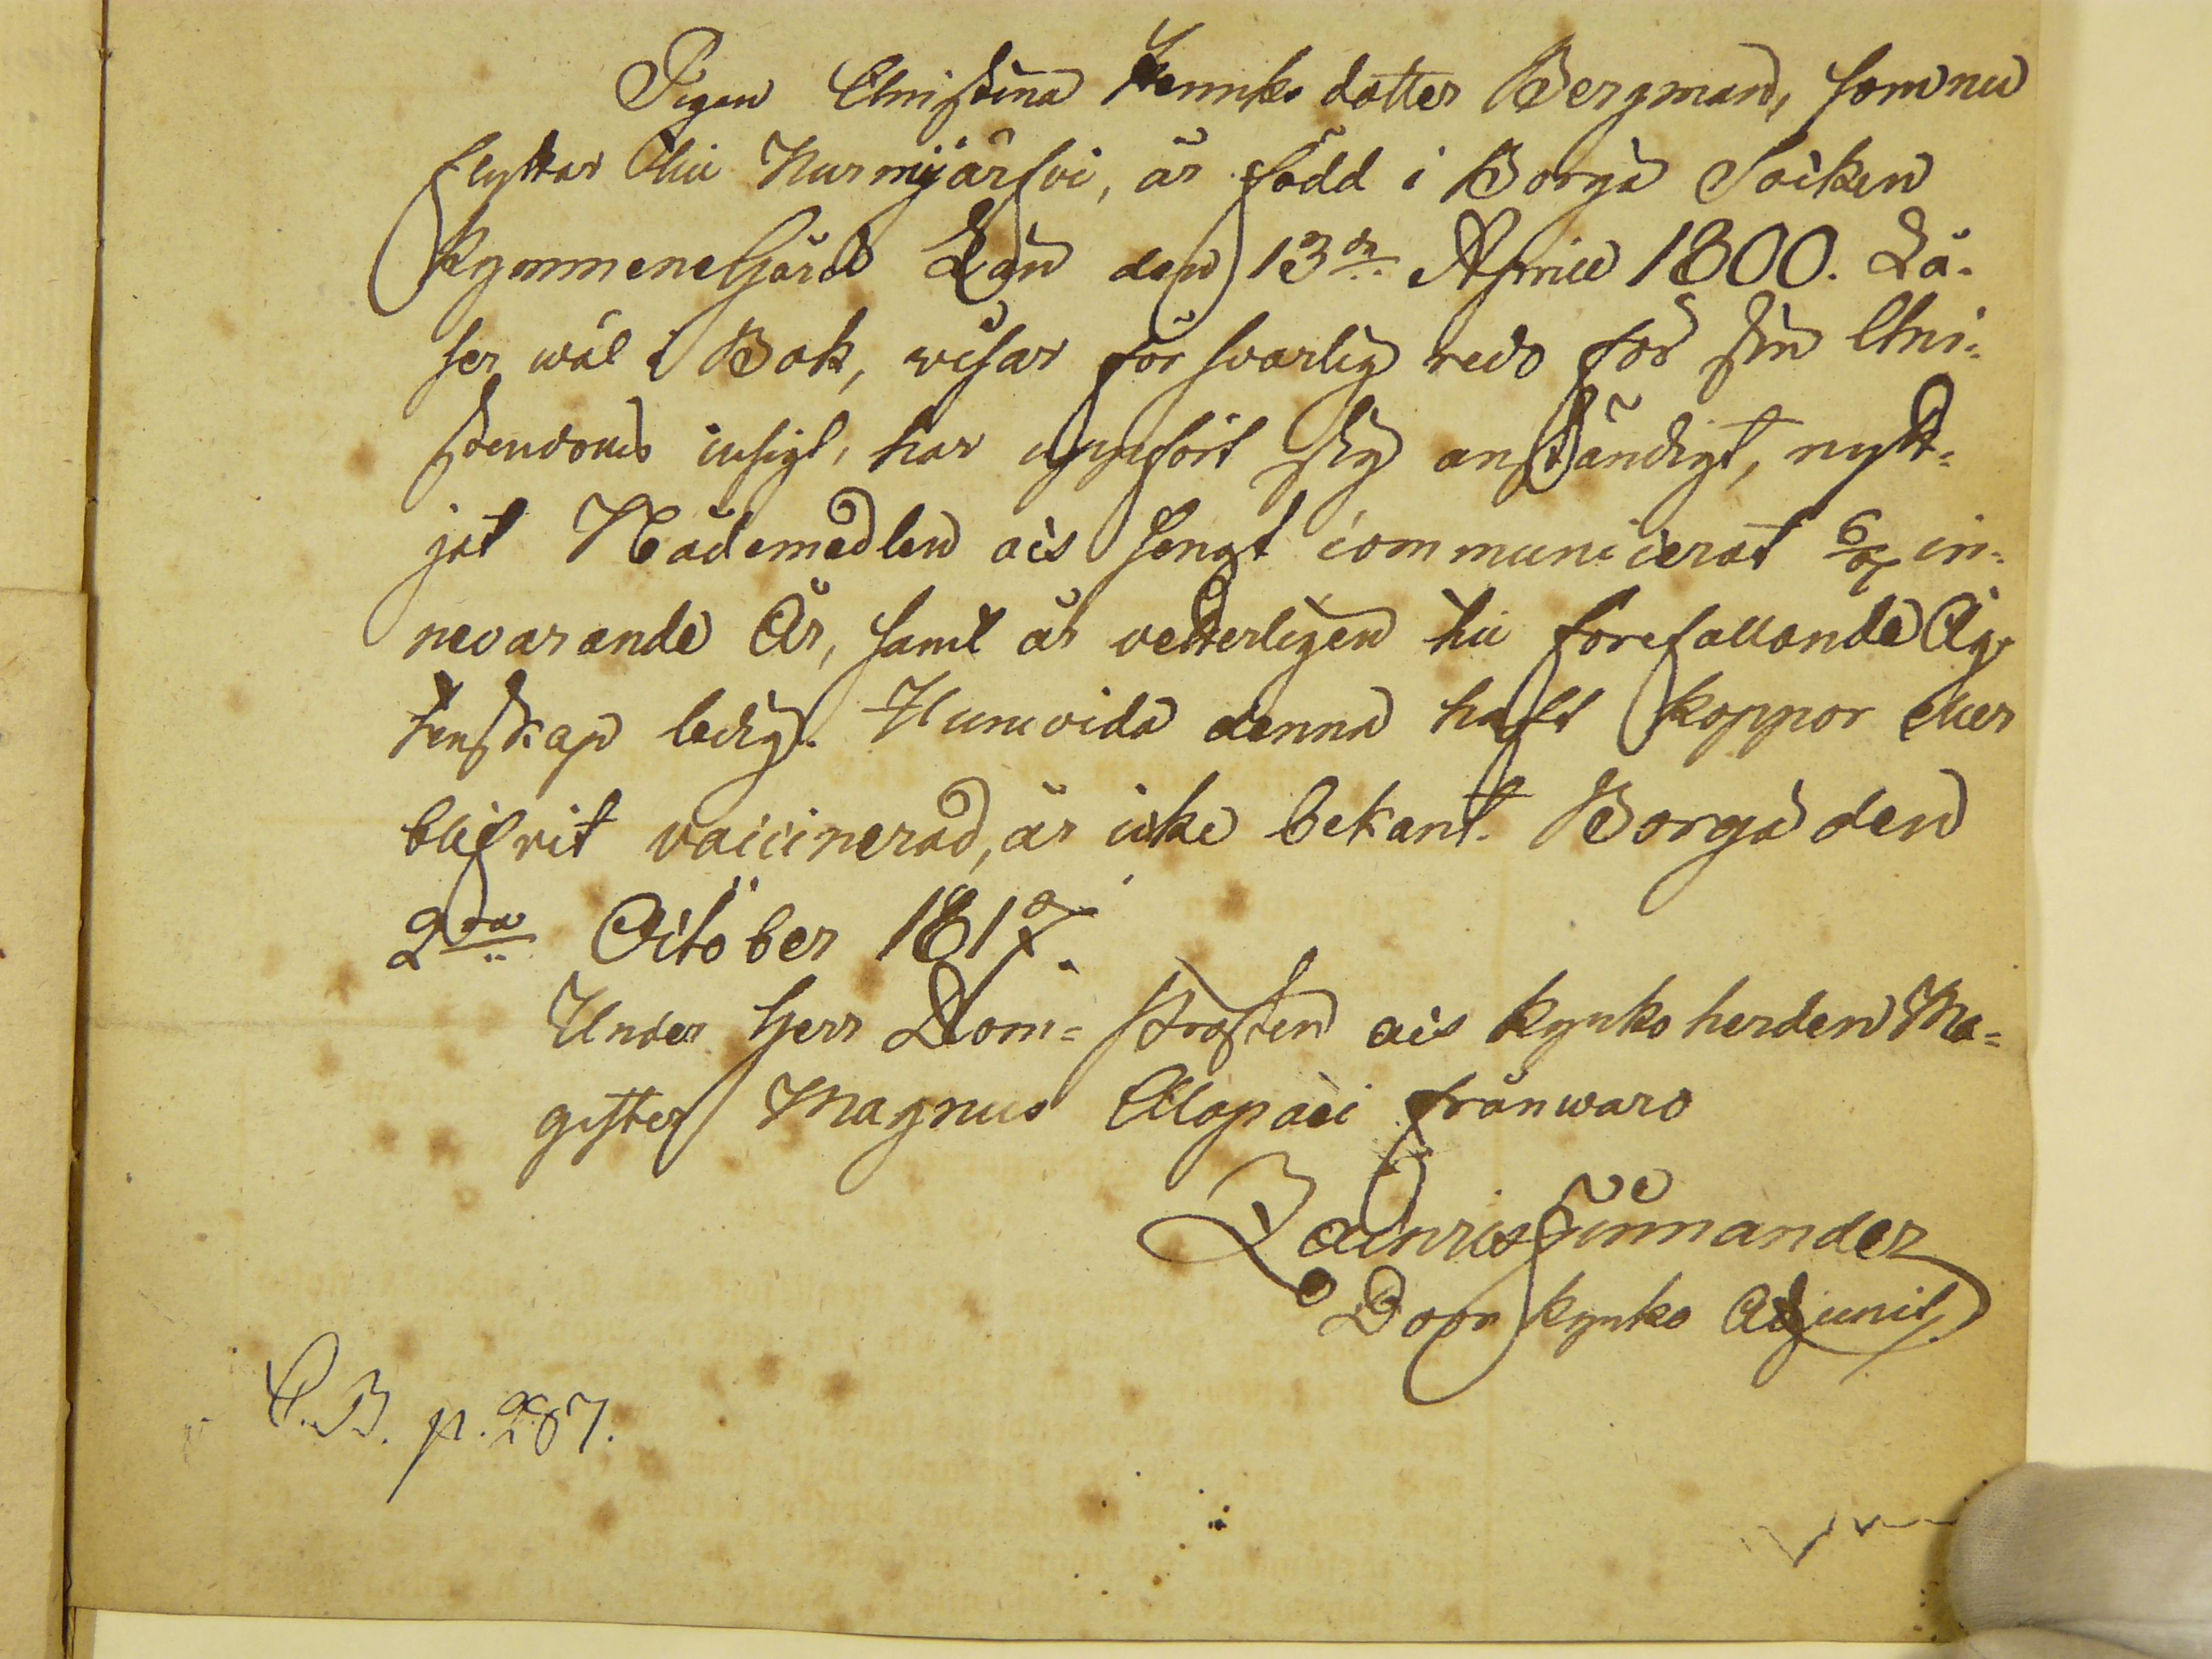 Pigan Christina Henriks dotter Bergman, som nu
flyttar till Nurmijärfvi, är född i Borgå Socken
Kymmenegårds Län den 13de April 1800. Lä-
ser wäl i Bok, wisar försvarlig redo för sin Chri-
stendoms insigt, har uppfört sig anständigt, nytt-
jat Nådemedlen och senast communicerat in-
nevarande År, samt är vetterligen till förefallande Äg-
tenskap ledig. Huruvida denna haft koppor eller
blifvit vaccinerad, är icke bekant. Borgå den
2dra October 1817.
Under Herr Dom-Prosten och Kyrkoherden Ma-
gister Magnus Alopæi frånwaro
Finnander
Dom Kyrko Adjunct
C.B. p. 287.